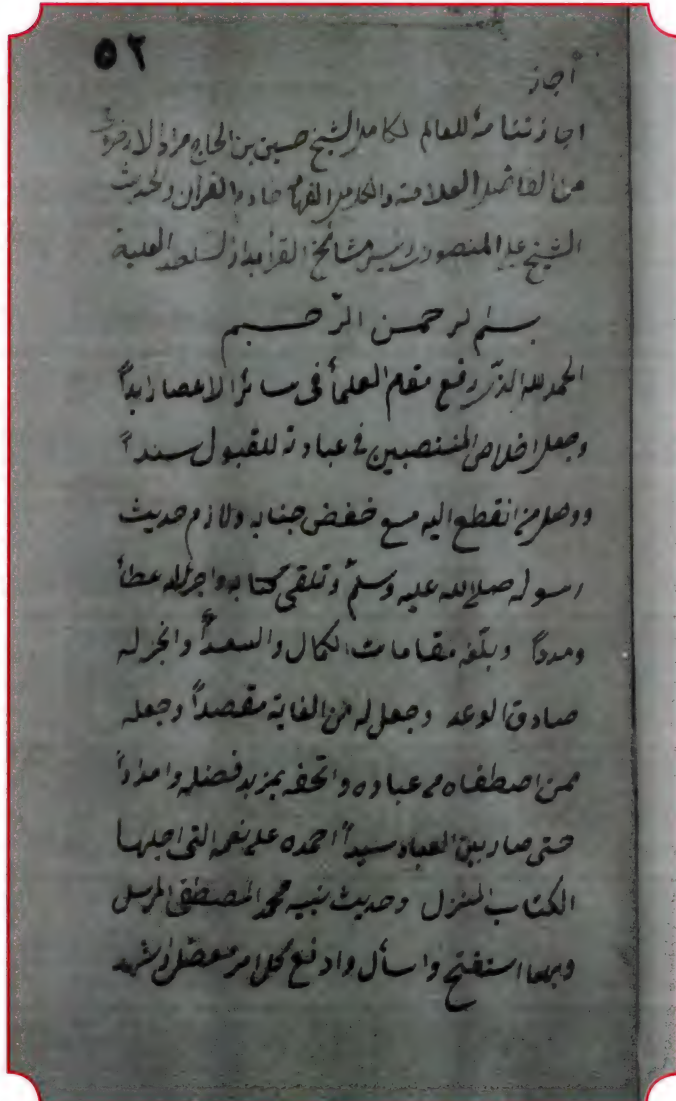 ٥٢
أجاز
اجازتنامة للعالم الكامل الشيخ حسين بن الحاج مراد
من الفاضل العلامة والكامل الفهام والقرآن والحديث
الشيخ علي المنصوري رئيس مشائخ القرأ العلية
بسم لرحمن الرّحيم
الحمد لله الذي رفع مقام العلمأ في سائر الاعصار ابداً
وجعل اخلاص المنتصبين في عبادته للقبول سنداً
ووصل من انقطع اليه مع خفض جنابه ولازم حديث
رسوله صلى الله عليه وسلم وتلقى كتابه واجزله عطأ
ومدداً وبلّغه مقامات الكمال والسعداً وانجز له
صادق الوعد وجعل له من الغاية مقصداً وجعله
ممن اصطفاه من عباده واتحفه بمزيد فضله وامداداً
حتى صار بين العباد سيداً احمده على نعمه التي اجلها
الكتاب المنزل وحديث نبيه محمد المصطفى المرسل
وبهما استفتح واسأل وادفع كل امر معضل